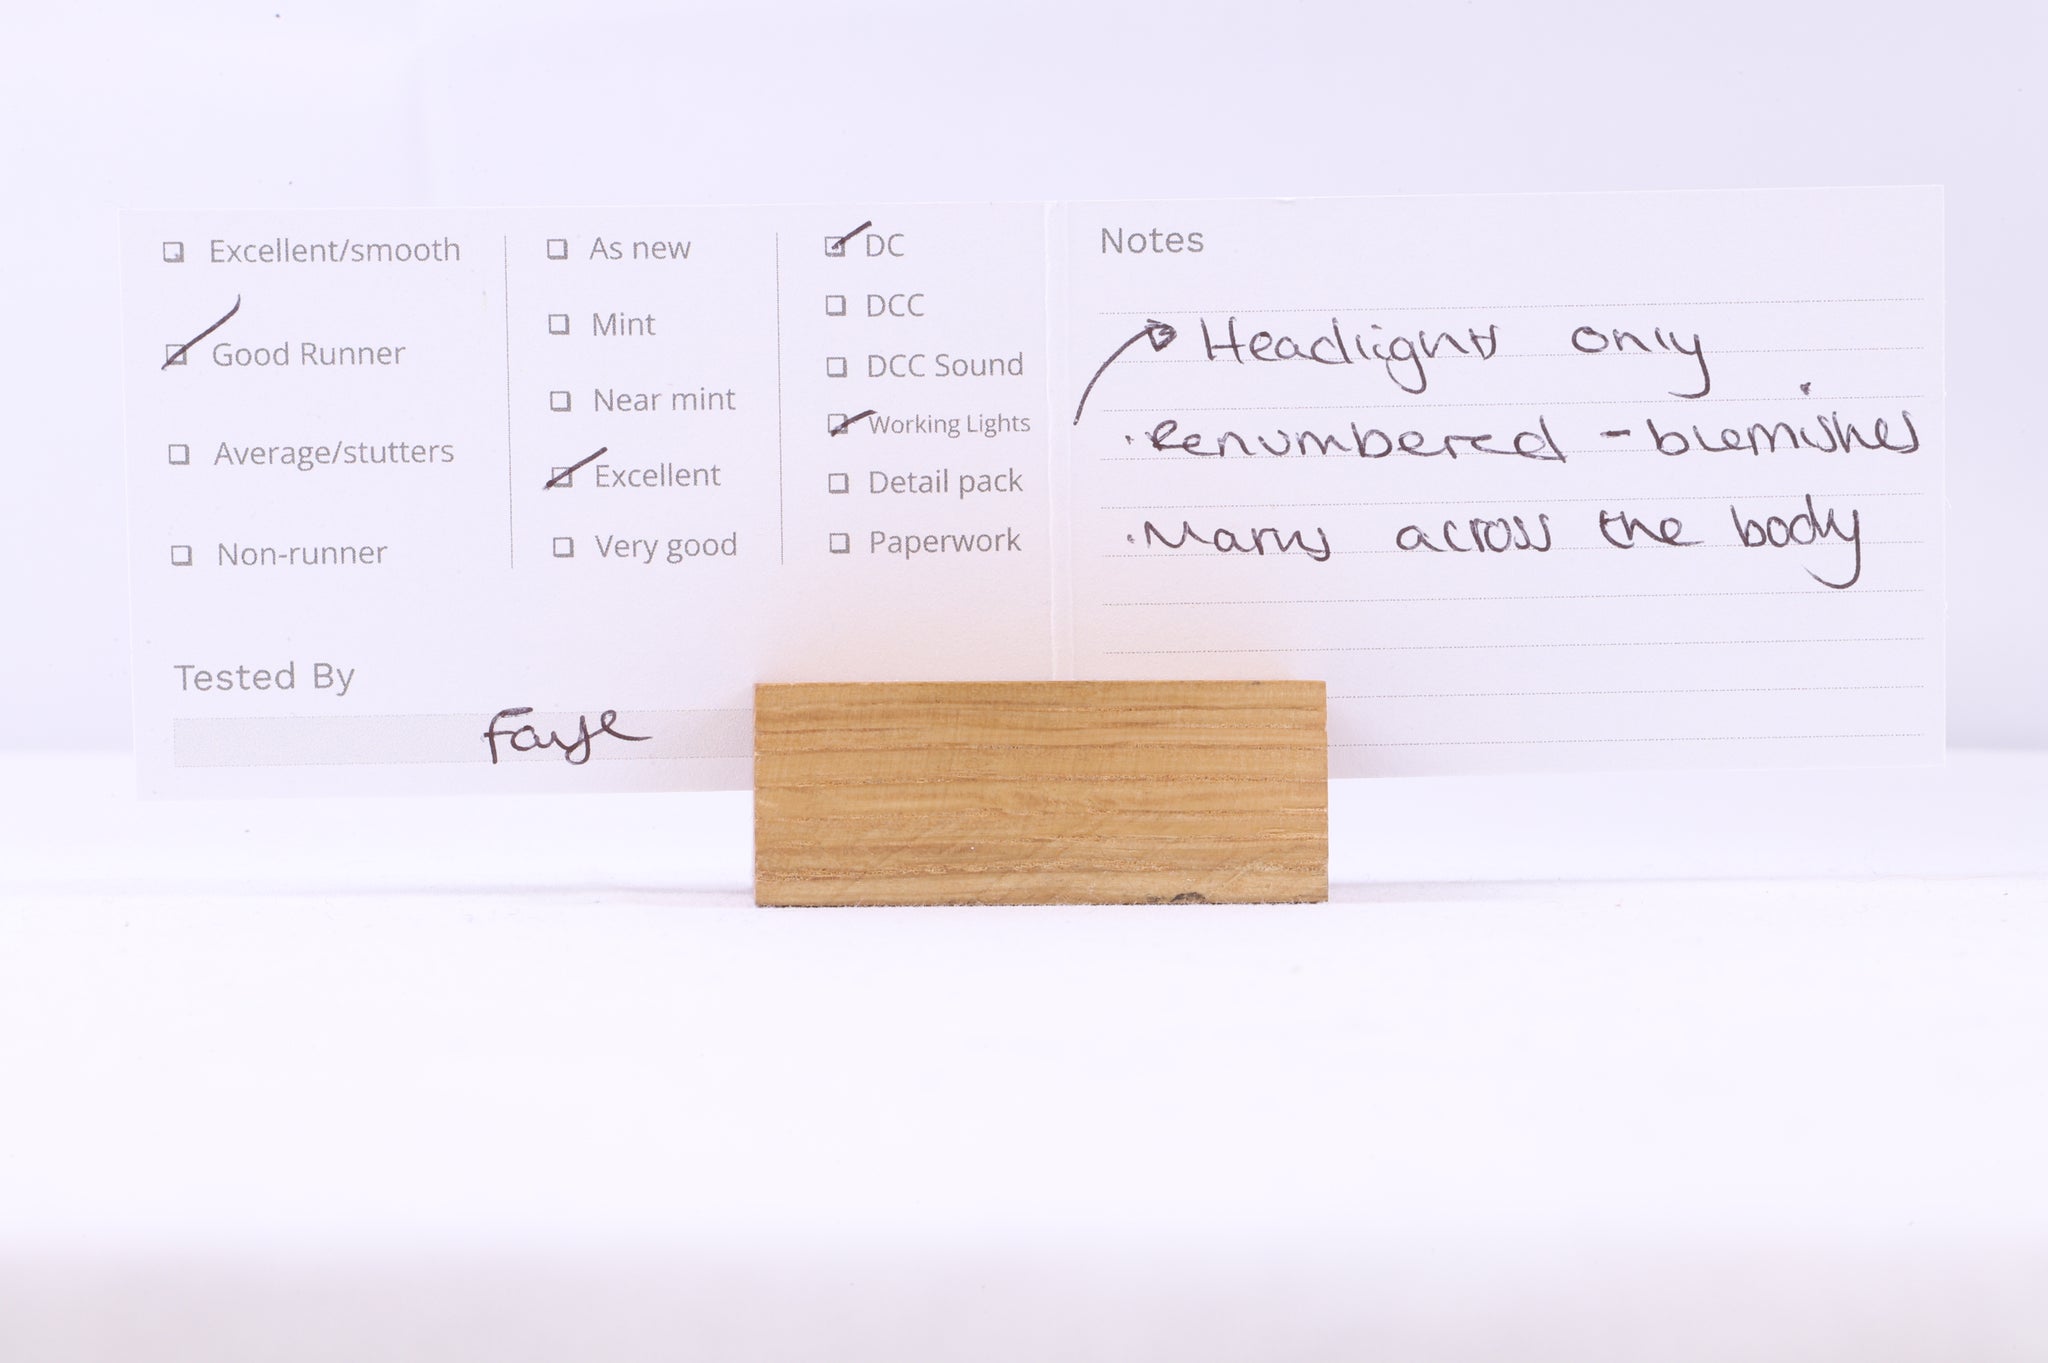 Excellent/smooth
Good Runner
Average/stutters
Non-runner
As new
Mint
Near mint
Excellent
Very good
DC
DCC
DCC Sound
Working Lights
Detail pack
Paperwork
Tested By
Faye
Notes
Headlights only
·Renumbered - blemishes
·Marks across the body